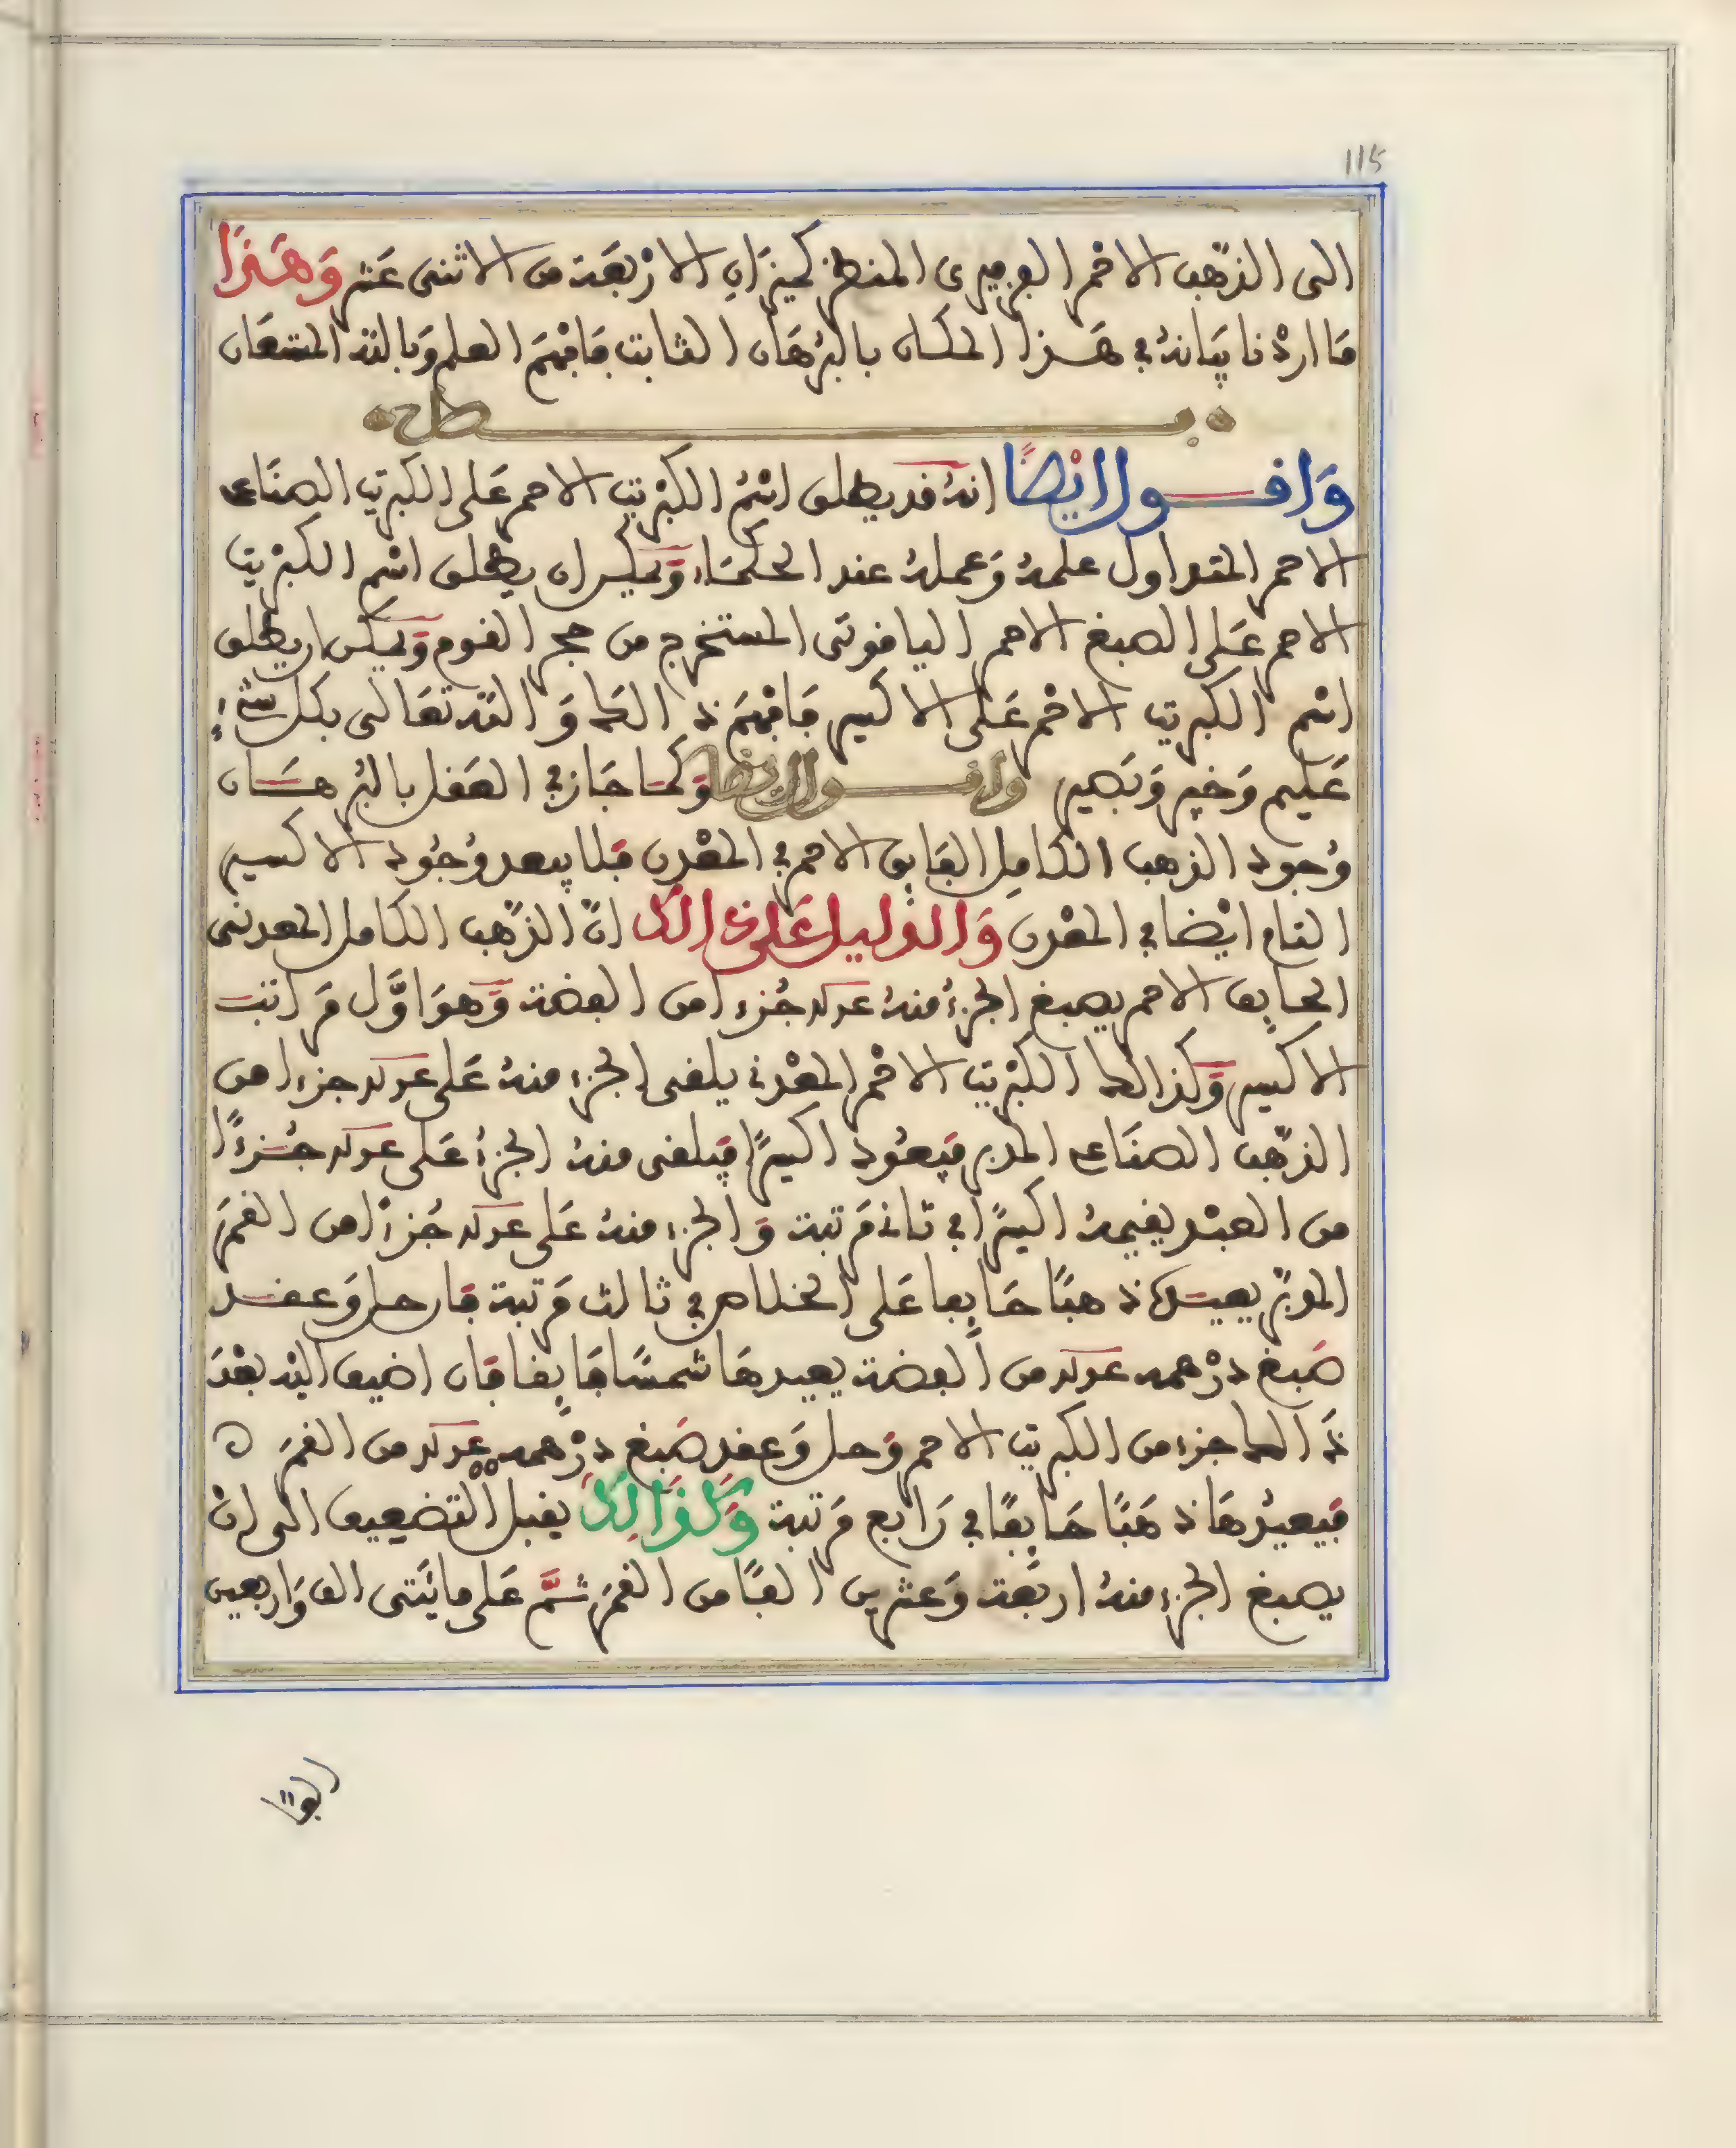 115
الى الذهب الاحمر الفرفيرى المنطرق كميزان الاربعة من الاثنى عشر وَهَذَا
ما اردنا بيانه في هذا المكان بالبرهان الثابت فافهم العلم وبالله المستعان
فصل
وَاقول ايْضًا انه قد يطلق اسم الكبريت الاحمر على الكبريت الصناعي
الاحمر المتداول علمه وعمله عند الحكماء ويمكن ان يطلق اسم الكبريت
الاحمر على الصبغ الاحمر الياقوتى المستخرج من حجر القوم ويمكن ان يطلق
اسم الكبريت الاحمر على الاكسير فافهم ذالك والله تعالى بكل شيء
عليم وخبير وبصير واقول ايضا وكما جاز في العقل بالبرهان
وجود الذهب الكامل الفايق الاحمر في المعدن فلا يبعد وجود الاكسير
التام ايضا في المعدن وَالدليل عَلى ذالك ان الذهب الكامل المعدنى
الخالص الاحمر يصبغ الجزء منه جزءا من الفضة وهو اول مراتب
الاكسير وكذالك الكبريت الاحمر المعدني يلقى الجزء منه على جزءا من
الذهب الصناعي المدبر فيعود اكسيرا فيلقى منه الجزء على جزءًا
من العبد يقيمه اكسيرا في ثاني مرتبة والجزء منه على جزءا من القمر
المدبر يصير ذهبًا خالصا على الخلاص في ثالث مرتبة فان حل وعقد
صبغ درهمه من الفضة يصيرها شمسًا فايقا فان اضيف اليه بعد
ذالك جزء من الكبريت الاحمر وحل وعقد صبغ درهمه من القمر
فيصيرها ذهبًا خالصًا في رابع مرتبة وَكذالِكَ يقبل التضعيف الى ان
يصبغ الجزء منه اربعة وعشرين الفًا من القمر ثم على مائتى الف واربعين
الفا